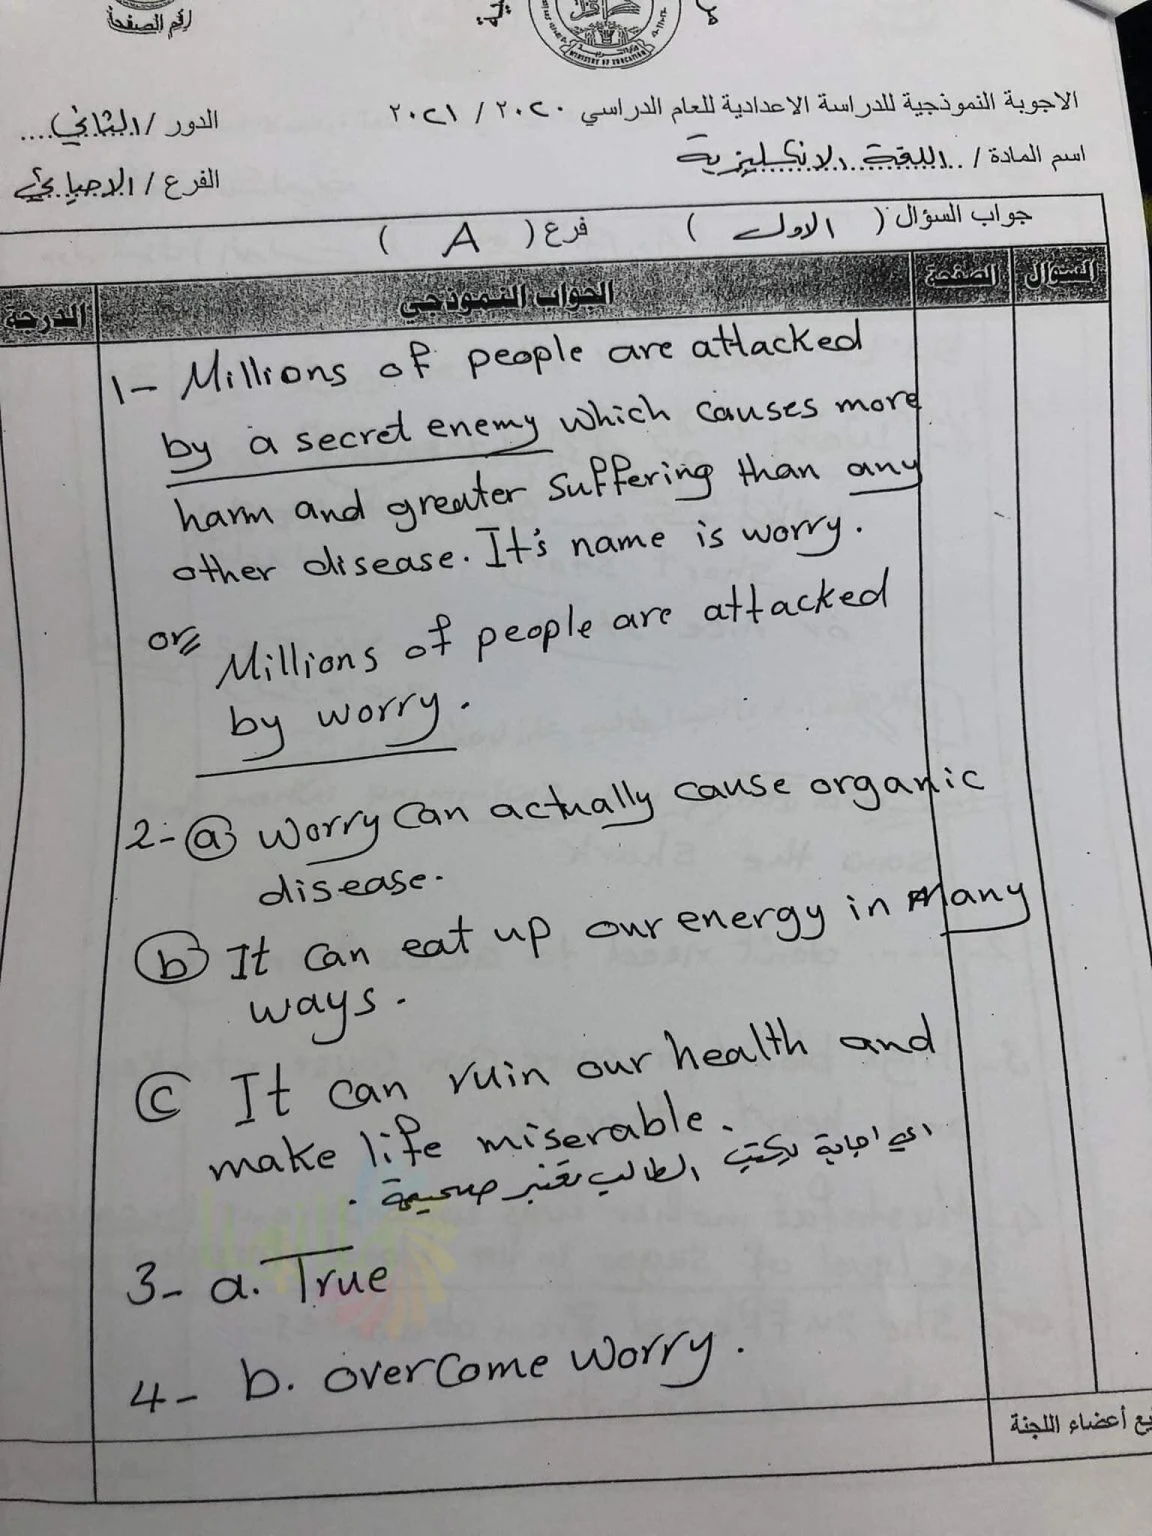 رقم الصفحة
MINISTRY OF EDUCATION
الاجوبة النموذجية للدراسة الاعدادية للعام الدراسي ٢٠٢٠ / ٢٠٢١
الدور / الثاني....
اسم المادة / ..اللغة الانكليزية
الفرع / الاحيائي
جواب السؤال ( الاول ) فرع ( A )
السؤال الصفحة الجواب النموذجي الدرجة
1- Millions of people are attacked
by a secret enemy which causes more
harm and greater suffering than any
other disease. It's name is worry.
or Millions of people are attacked
by worry.
2- a worry can actually cause organic
disease.
b It can eat up our energy in many
ways.
c It can ruin our health and
make life miserable.
اي اجابة يكتب الطالب تعتبر صحيحة .
3- a. True
4- b. overcome worry.
أعضاء اللجنة